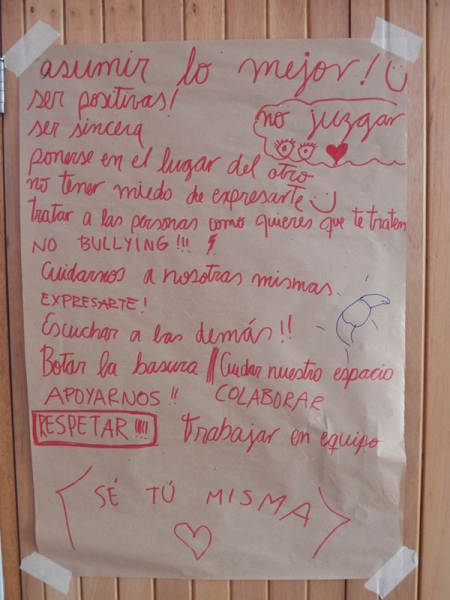 asumir lo mejor!
ser positivas!
ser sincera
no juzgar
ponerse en el lugar del otro
no tener miedo de expresarte
tratar a las personas como quieres que te traten
NO BULLYING !!!
Cuidarnos a nosotras mismas
EXPRESARTE!
Escuchar a las demás!!
Botar la basura // Cuidar nuestro espacio
APOYARNOS !! COLABORAR
RESPETAR !!!! trabajar en equipo
SÉ TÚ MISMA